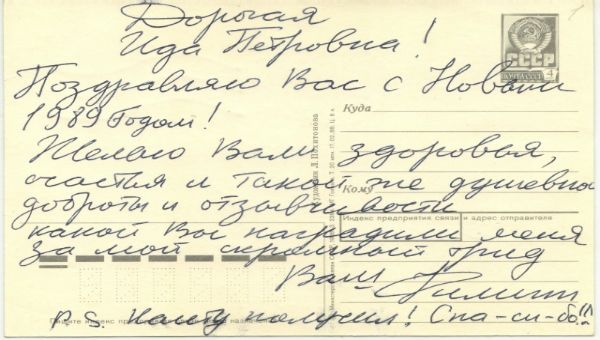 Дорогая
Ида Петровна!
Поздравляю Вас с Новым
1989 Годом!
Желаю Вам здоровья,
счастья и такой же душевной
доброты и отзывчивости
какой Вы наградили меня
за мой скромный труд
Ваш
P.S. получил! Спа-си-бо!!!
СССР
ПОЧТА СССР
4
Куда
Кому
Индекс предприятия связи и адрес отправителя